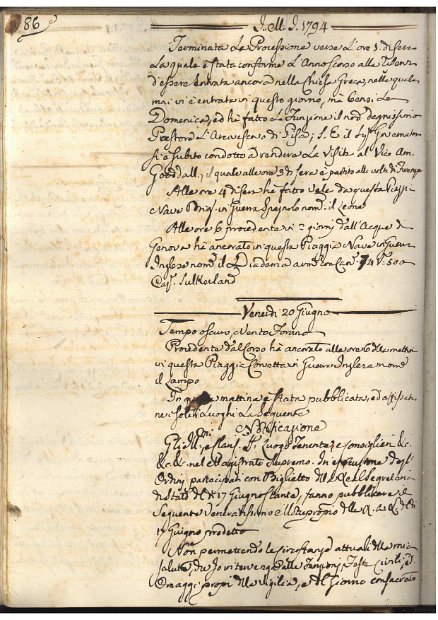 86
I. M. I. 1794
Terminata La Processione verso L'ore 1. di sera
La quale è stata conforme L'Anno scorso alle
d'essere entrata ancora nella Chiesa Greca, nella quale
mai vi è entrata in questo giorno, ma bensì La
Domenica, ed ha fatto La Funzione il nro degnissimo
Pastore L'Arcivescovo di Pisa; S. E. il Sig.r Governatore
si è subito condotto a rendere La Visita al Vice Am.
Goddall, il quale alle ore di sera è partito alla volta di
Alle ore 4 di sera ha fatto vela da questa
Nave Brig.no in Guerra Inglese nom.o il
Alle ore 6 proveniente in 2 giorni dall'Acque di
Genova ha ancorato in questa Piaggia Nave in Guerra
Inglese nom.a il Diadema arm.ta con Can.i 74 500
Cap. Sutherland
Venerdì 20 Giugno
Tempo oscuro, e Vento
Proveniente dal Corso ha ancorato alle ore 6 della mattina
in questa Piaggia Corvetta in Guerra Inglese nom.a
il Lampo
In questa mattina è stata pubblicata, ed affissa
nei soliti Luoghi La seguente
Notificazione
Gl'Ill.mi, e Clariss. SS.ri Luogo Tenente, e Consiglieri &c.
&c. &c. nel Magistrato Supremo. In esecuzione degl'
Ordini partecipati con Biglietto dell' R. Segreteria
di Stato de' 17 Giugno stante, fanno pubblicare il
seguente Veneratissimo Motuproprio della R. A. S. de'
17 Giugno predetto
Non permettendo le circostanze attuali della mia
salute, che io intervenga alle Funzioni, Feste Civili, ed
Omaggi proprj della Vigilia, e del Giorno consacrato